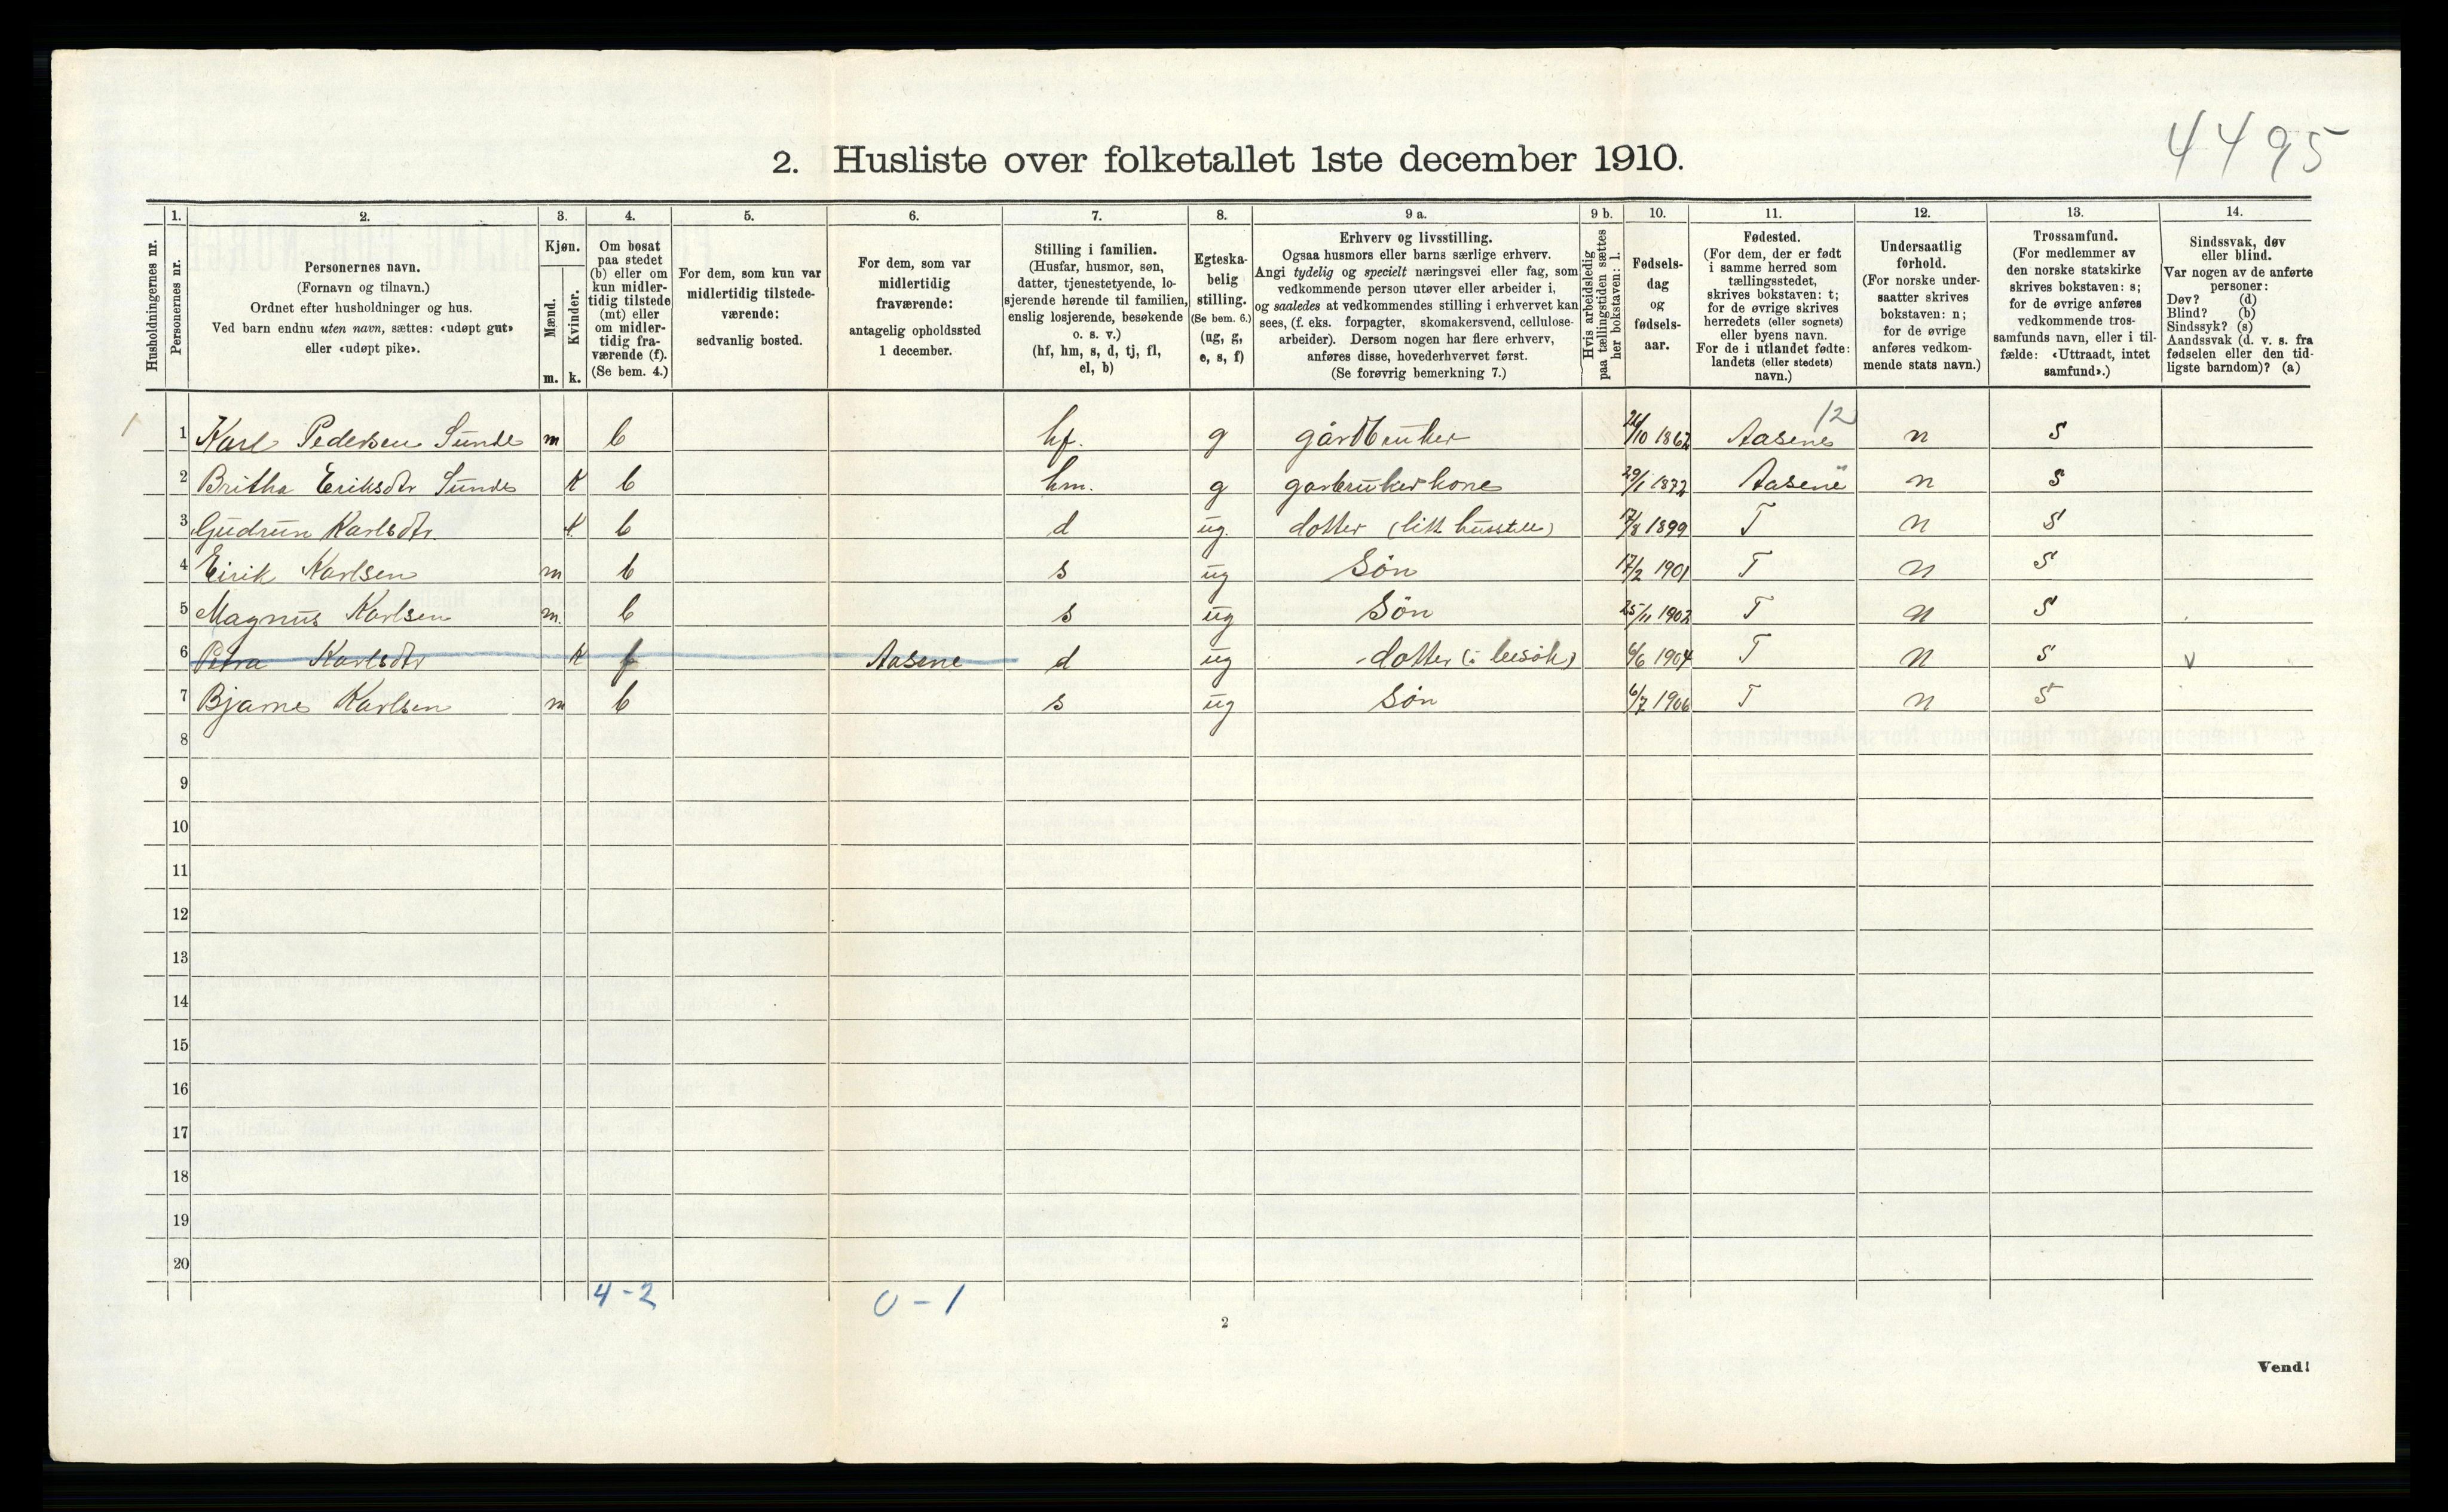 4495
2. Husliste over folketallet 1ste december 1910.
Husholdningernes nr.
1. Personernes nr.
2. Personernes navn.
(Fornavn og tilnavn.)
Ordnet efter husholdninger og hus.
Ved barn endnu uten navn, sættes: «udøpt gut»
eller «udøpt pike».
3. Kjøn.
Mænd. m.
Kvinder. k.
4. Om bosat
paa stedet
(b) eller om
kun midler-
tidig tilstede
(mt) eller
om midler-
tidig fra-
værende (f).
(Se bem. 4.)
5. For dem, som kun var
midlertidig tilstede-
værende:
sedvanlig bosted.
6. For dem, som var
midlertidig
fraværende:
antagelig opholdssted
1 december.
7. Stilling i familien.
(Husfar, husmor, søn,
datter, tjenestetyende, lo-
sjerende hørende til familien,
enslig losjerende, besøkende
o. s. v.)
(hf, hm, s, d, tj, fl,
el, b)
8. Egteska-
belig
stilling.
(Se bem. 6.)
(ug, g,
e, s, f)
9 a. Erhverv og livsstilling.
Ogsaa husmors eller barns særlige erhverv.
Angi tydelig og specielt næringsvei eller fag, som
vedkommende person utøver eller arbeider i,
og saaledes at vedkommendes stilling i erhvervet kan
sees, (f. eks. forpagter, skomakersvend, cellulose-
arbeider). Dersom nogen har flere erhverv,
anføres disse, hovederhvervet først.
(Se forøvrig bemerkning 7.)
9 b. Hvis arbeidsledig
paa tællingstiden sættes
her bokstaven: l.
10. Fødsels-
dag
og
fødsels-
aar.
11. Fødested.
(For dem, der er født
i samme herred som
tællingsstedet,
skrives bokstaven: t;
for de øvrige skrives
herredets (eller sognets)
eller byens navn.
For de i utlandet fødte:
landets (eller stedets)
navn.)
12. Undersaatlig
forhold.
(For norske under-
saatter skrives
bokstaven: n;
for de øvrige
anføres vedkom-
mende stats navn.)
13. Trossamfund.
(For medlemmer av
den norske statskirke
skrives bokstaven: s;
for de øvrige anføres
vedkommende tros-
samfunds navn, eller i til-
fælde: «Uttraadt, intet
samfund».)
14. Sindssvak, døv
eller blind.
Var nogen av de anførte
personer:
Døv? (d)
Blind? (b)
Sindssyk? (s)
Aandssvak (d. v. s. fra
fødselen eller den tid-
ligste barndom)? (a)
12
1 1 Karl Pedersen Sunde m b hf. g gårdbruker /10 1862 Aasene n S
2 Britha Eriksdtr Sunde K b hm. g garbruker kone 29/1 1872 Aasene n S
3 Gudrun Karlsdtr. K b d ug. dotter (litt husstell) 17/8 1899 T n S
4 Eirik Karlsen m b s ug Søn 17/2 1901 T n S
5 Magnus Karlsen m. b s ug Søn 25/11 1902 T n S
6 Petra Karlsdtr K f Aasene d ug dotter (i besök) 6/6 1904 T n S v
7 Bjarne Karlsen m b s ug Søn 6/7 1906 T n S
8
9
10
11
12
13
14
15
16
17
18
19
20
4-2 0-1
2
Vend!